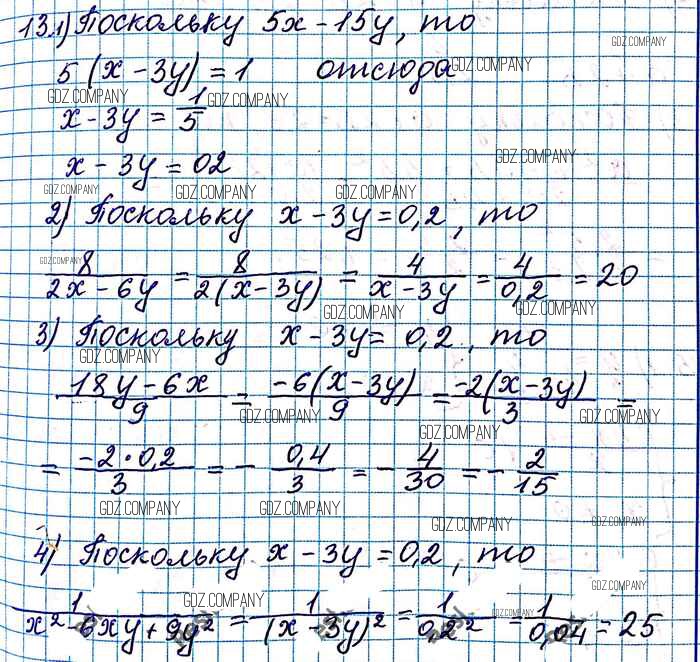 13.1) Поскольку 5x - 15y, то
GDZ.COMPANY
5 (x - 3y) = 1 отсюда
GDZ.COMPANY
GDZ.COMPANY GDZ.COMPANY
x - 3y = 1/5
x - 3y = 02
GDZ.COMPANY
GDZ.COMPANY GDZ.COMPANY GDZ.COMPANY
2) Поскольку x - 3y = 0,2, то
GDZ.COMPANY
8/(2x - 6y) = 8/(2(x - 3y)) = 4/(x - 3y) = 4/0,2 = 20
GDZ.COMPANY GDZ.COMPANY
3) Поскольку x - 3y = 0,2, то
GDZ.COMPANY
(18y - 6x)/9 = (-6(x - 3y))/9 = (-2(x - 3y))/3 =
GDZ.COMPANY GDZ.COMPANY
GDZ.COMPANY
= (-2·0,2)/3 = - 0,4/3 = - 4/30 = - 2/15
GDZ.COMPANY GDZ.COMPANY
GDZ.COMPANY GDZ.COMPANY
4) Поскольку x - 3y = 0,2, то
GDZ.COMPANY
GDZ.COMPANY
1/(x² - 6xy + 9y²) = 1/(x - 3y)² = 1/0,2² = 1/0,04 = 25
GDZ.COMPANY